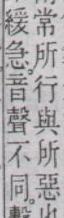 常所行與所惡
緩急音聲不同